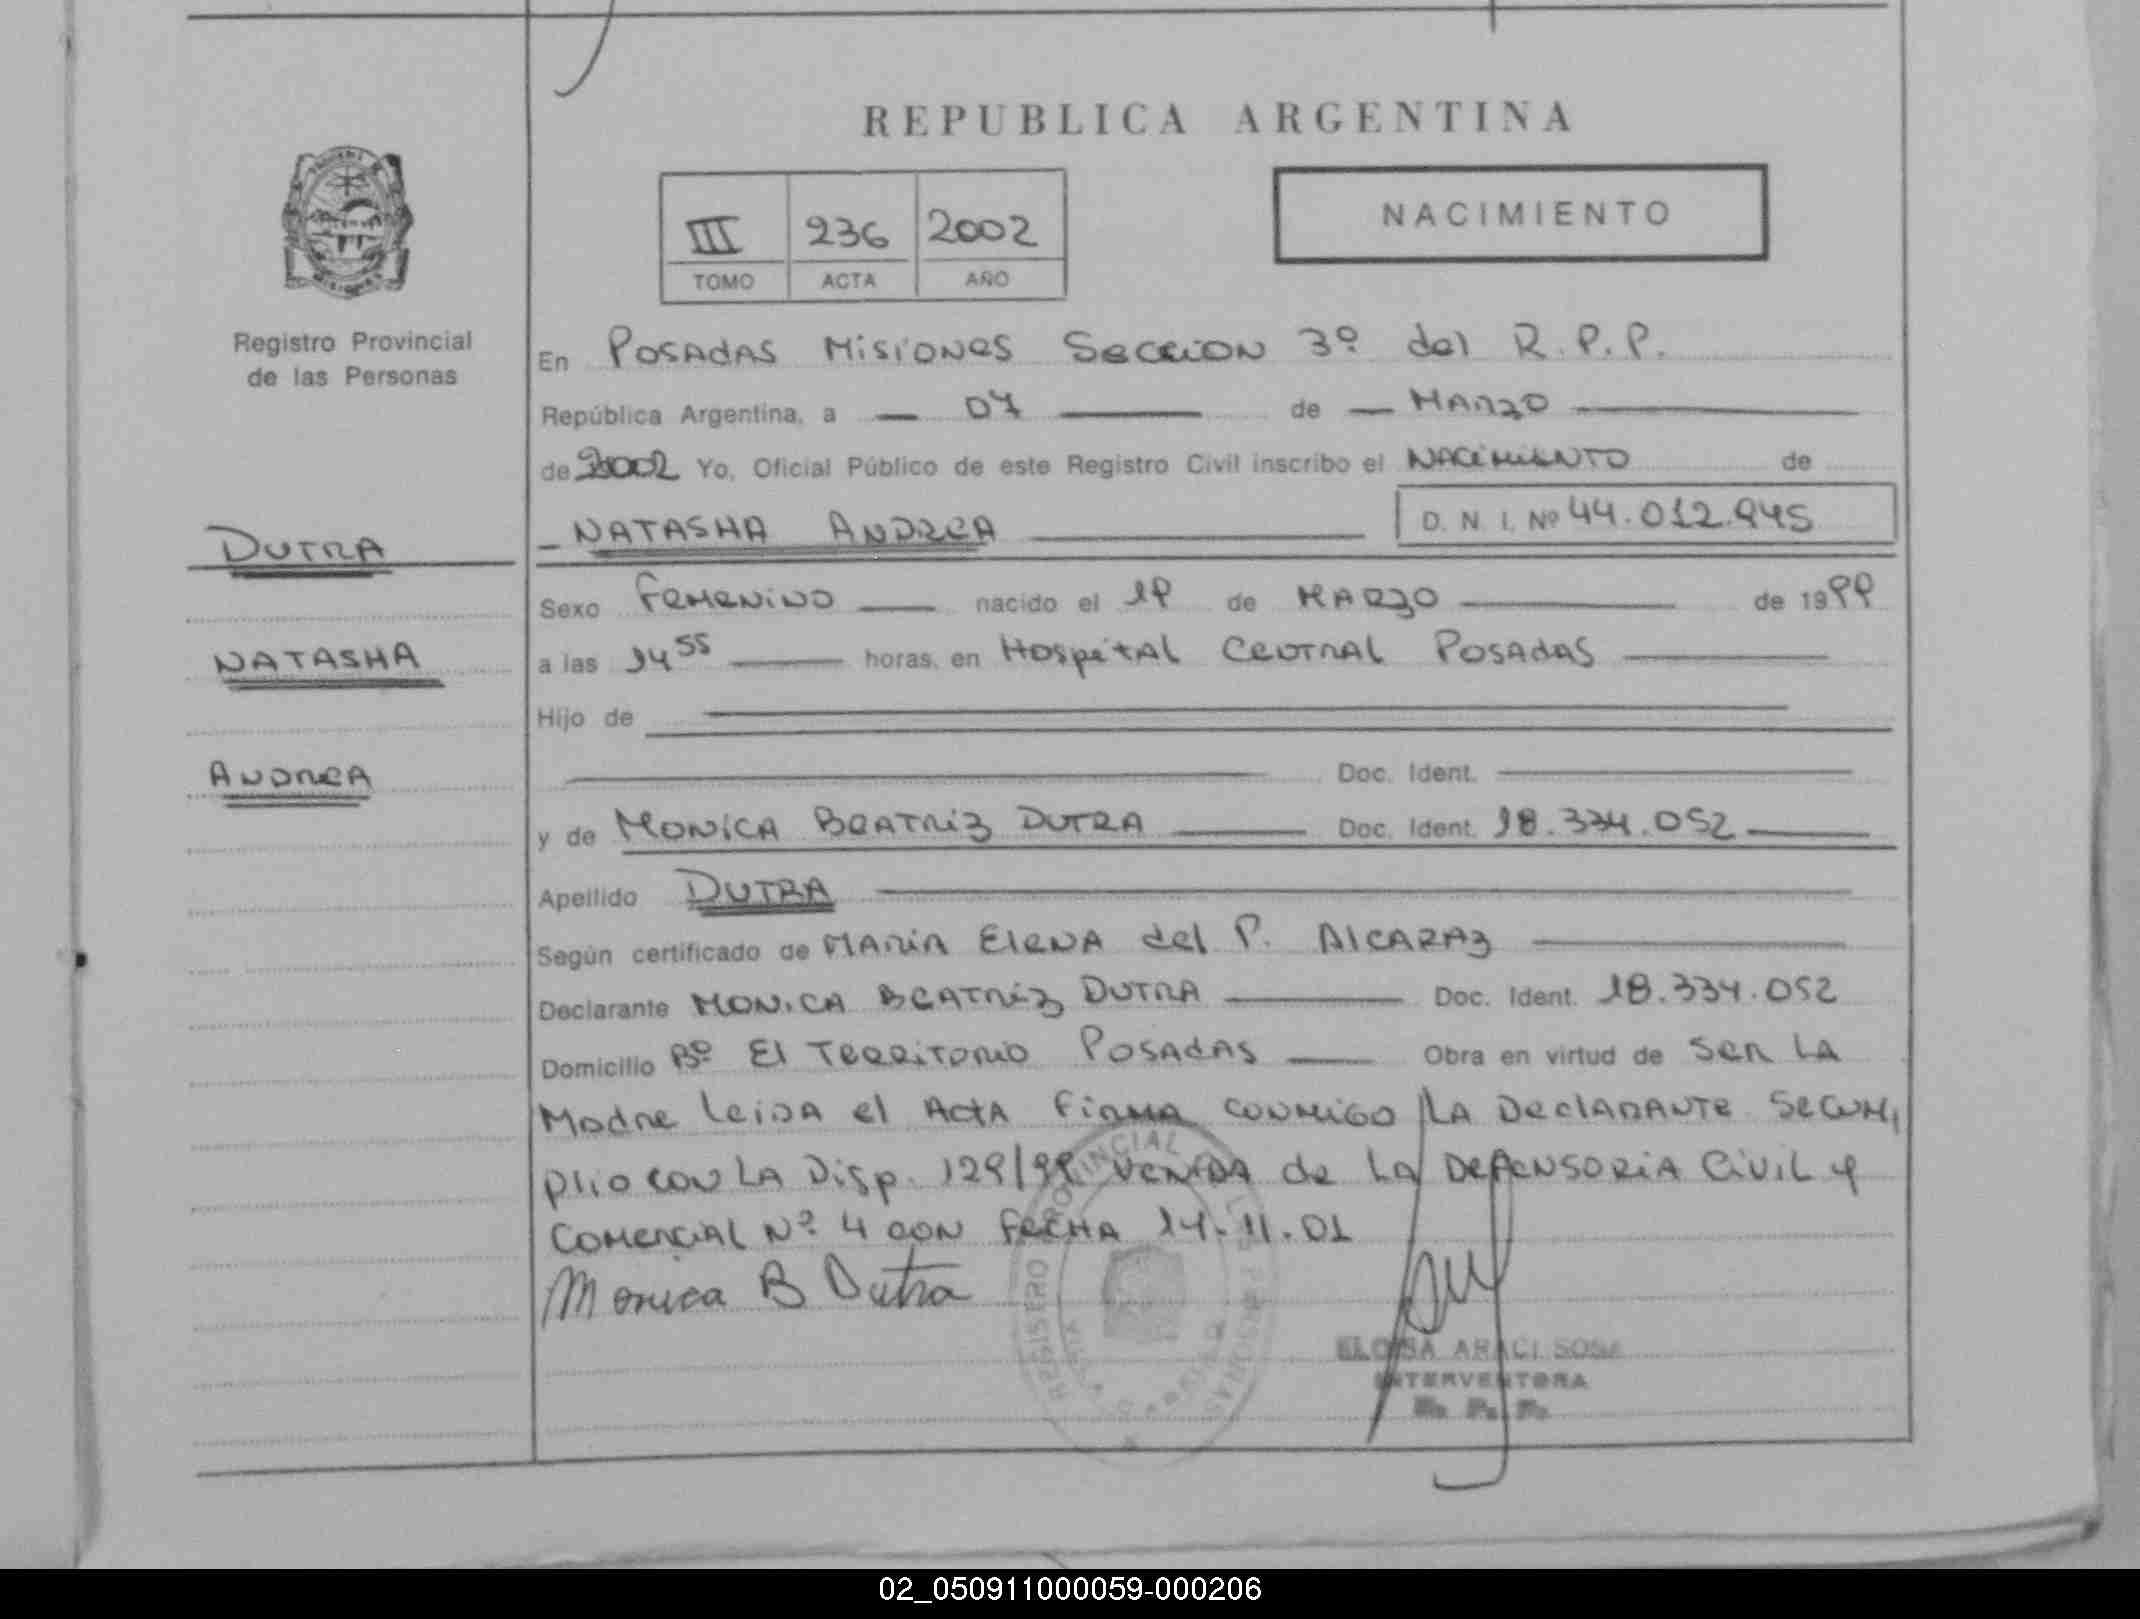 REPUBLICA ARGENTINA
III 236 2002
TOMO ACTA AÑO
NACIMIENTO
Registro Provincial
de las Personas
DUTRA
NATASHA
ANDREA
En POSADAS MISIONES SECCION 3º del R.P.P.
República Argentina, a 07 de MARZO
de 2002 Yo, Oficial Público de este Registro Civil inscribo el NACIMIENTO de
NATASHA ANDREA D. N. I. Nº 44.012.945
Sexo FEMENINO nacido el 19 de MARZO de 1999
a las 14 55 horas, en HOSPITAL CENTRAL POSADAS
Hijo de
Doc. Ident.
y de MONICA BEATRIZ DUTRA Doc. Ident. 18.334.052
Apellido DUTRA
Según certificado de MARIA ELENA del P. ALCARAZ
Declarante MONICA BEATRIZ DUTRA Doc. Ident. 18.334.052
Domicilio Bº El TERRITORIO POSADAS Obra en virtud de SER LA
MADRE LEIDA el ACTA FIRMA CONMIGO LA DECLARANTE SE CUM,
PLIO CON LA Disp. 129/98 VENIDA de LA DEFENSORIA CIVIL y
COMERCIAL Nº 4 CON FECHA 14.11.01
Monica B Dutra
REGISTRO PROVINCIAL DE LAS PERSONAS
ELOISA ARACI SOSA
INTERVENTORA
R. P. P.
02_050911000059-000206